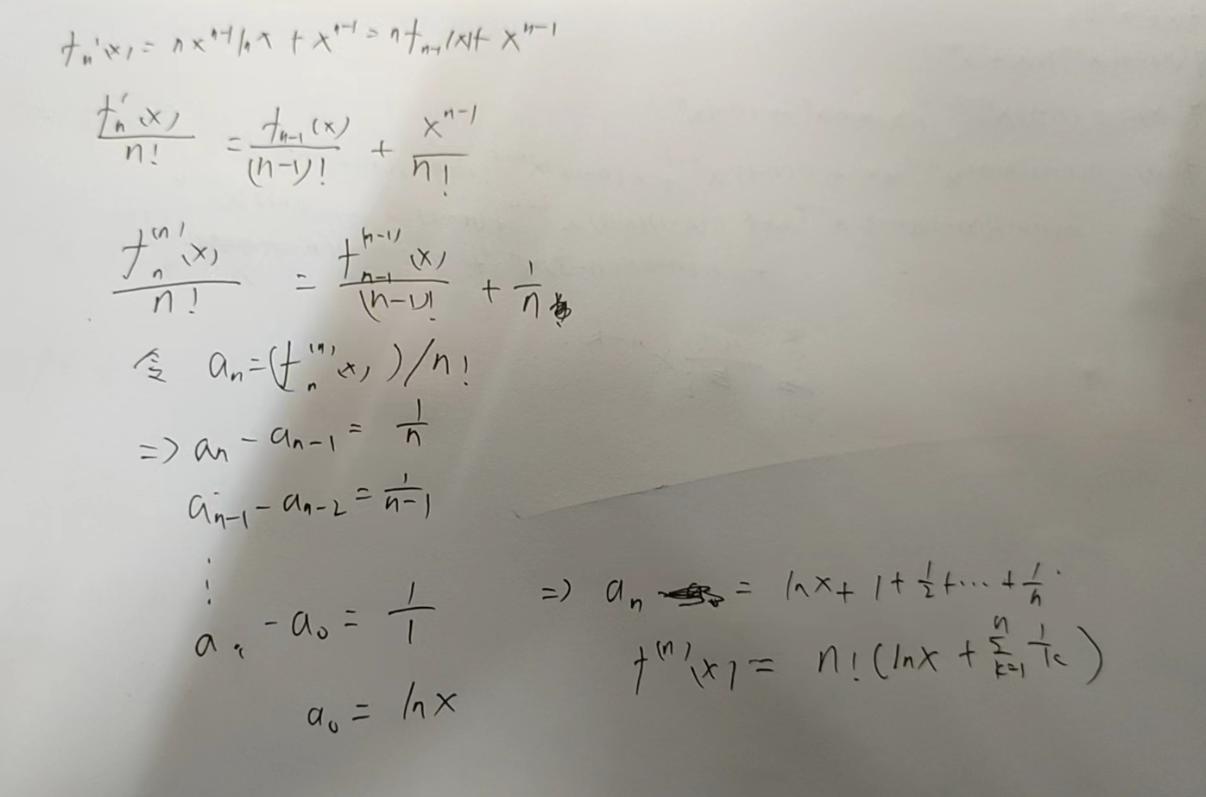 fₙ'(x) = nxⁿ⁻¹lnx + xⁿ⁻¹ = nfₙ₋₁(x) + xⁿ⁻¹
fₙ'(x)/n! = fₙ₋₁(x)/(n-1)! + xⁿ⁻¹/n!
fₙ⁽ⁿ⁾(x)/n! = fₙ₋₁⁽ⁿ⁻¹⁾(x)/(n-1)! + 1/n
令 aₙ=(fₙ⁽ⁿ⁾(x))/n!
=> aₙ - aₙ₋₁ = 1/n
aₙ₋₁ - aₙ₋₂ = 1/(n-1)
⋮
a₁ - a₀ = 1/1
a₀ = lnx
=> aₙ = lnx + 1 + 1/2 + ... + 1/n
f⁽ⁿ⁾(x) = n!(lnx + ∑ₖ₌₁ⁿ 1/k)